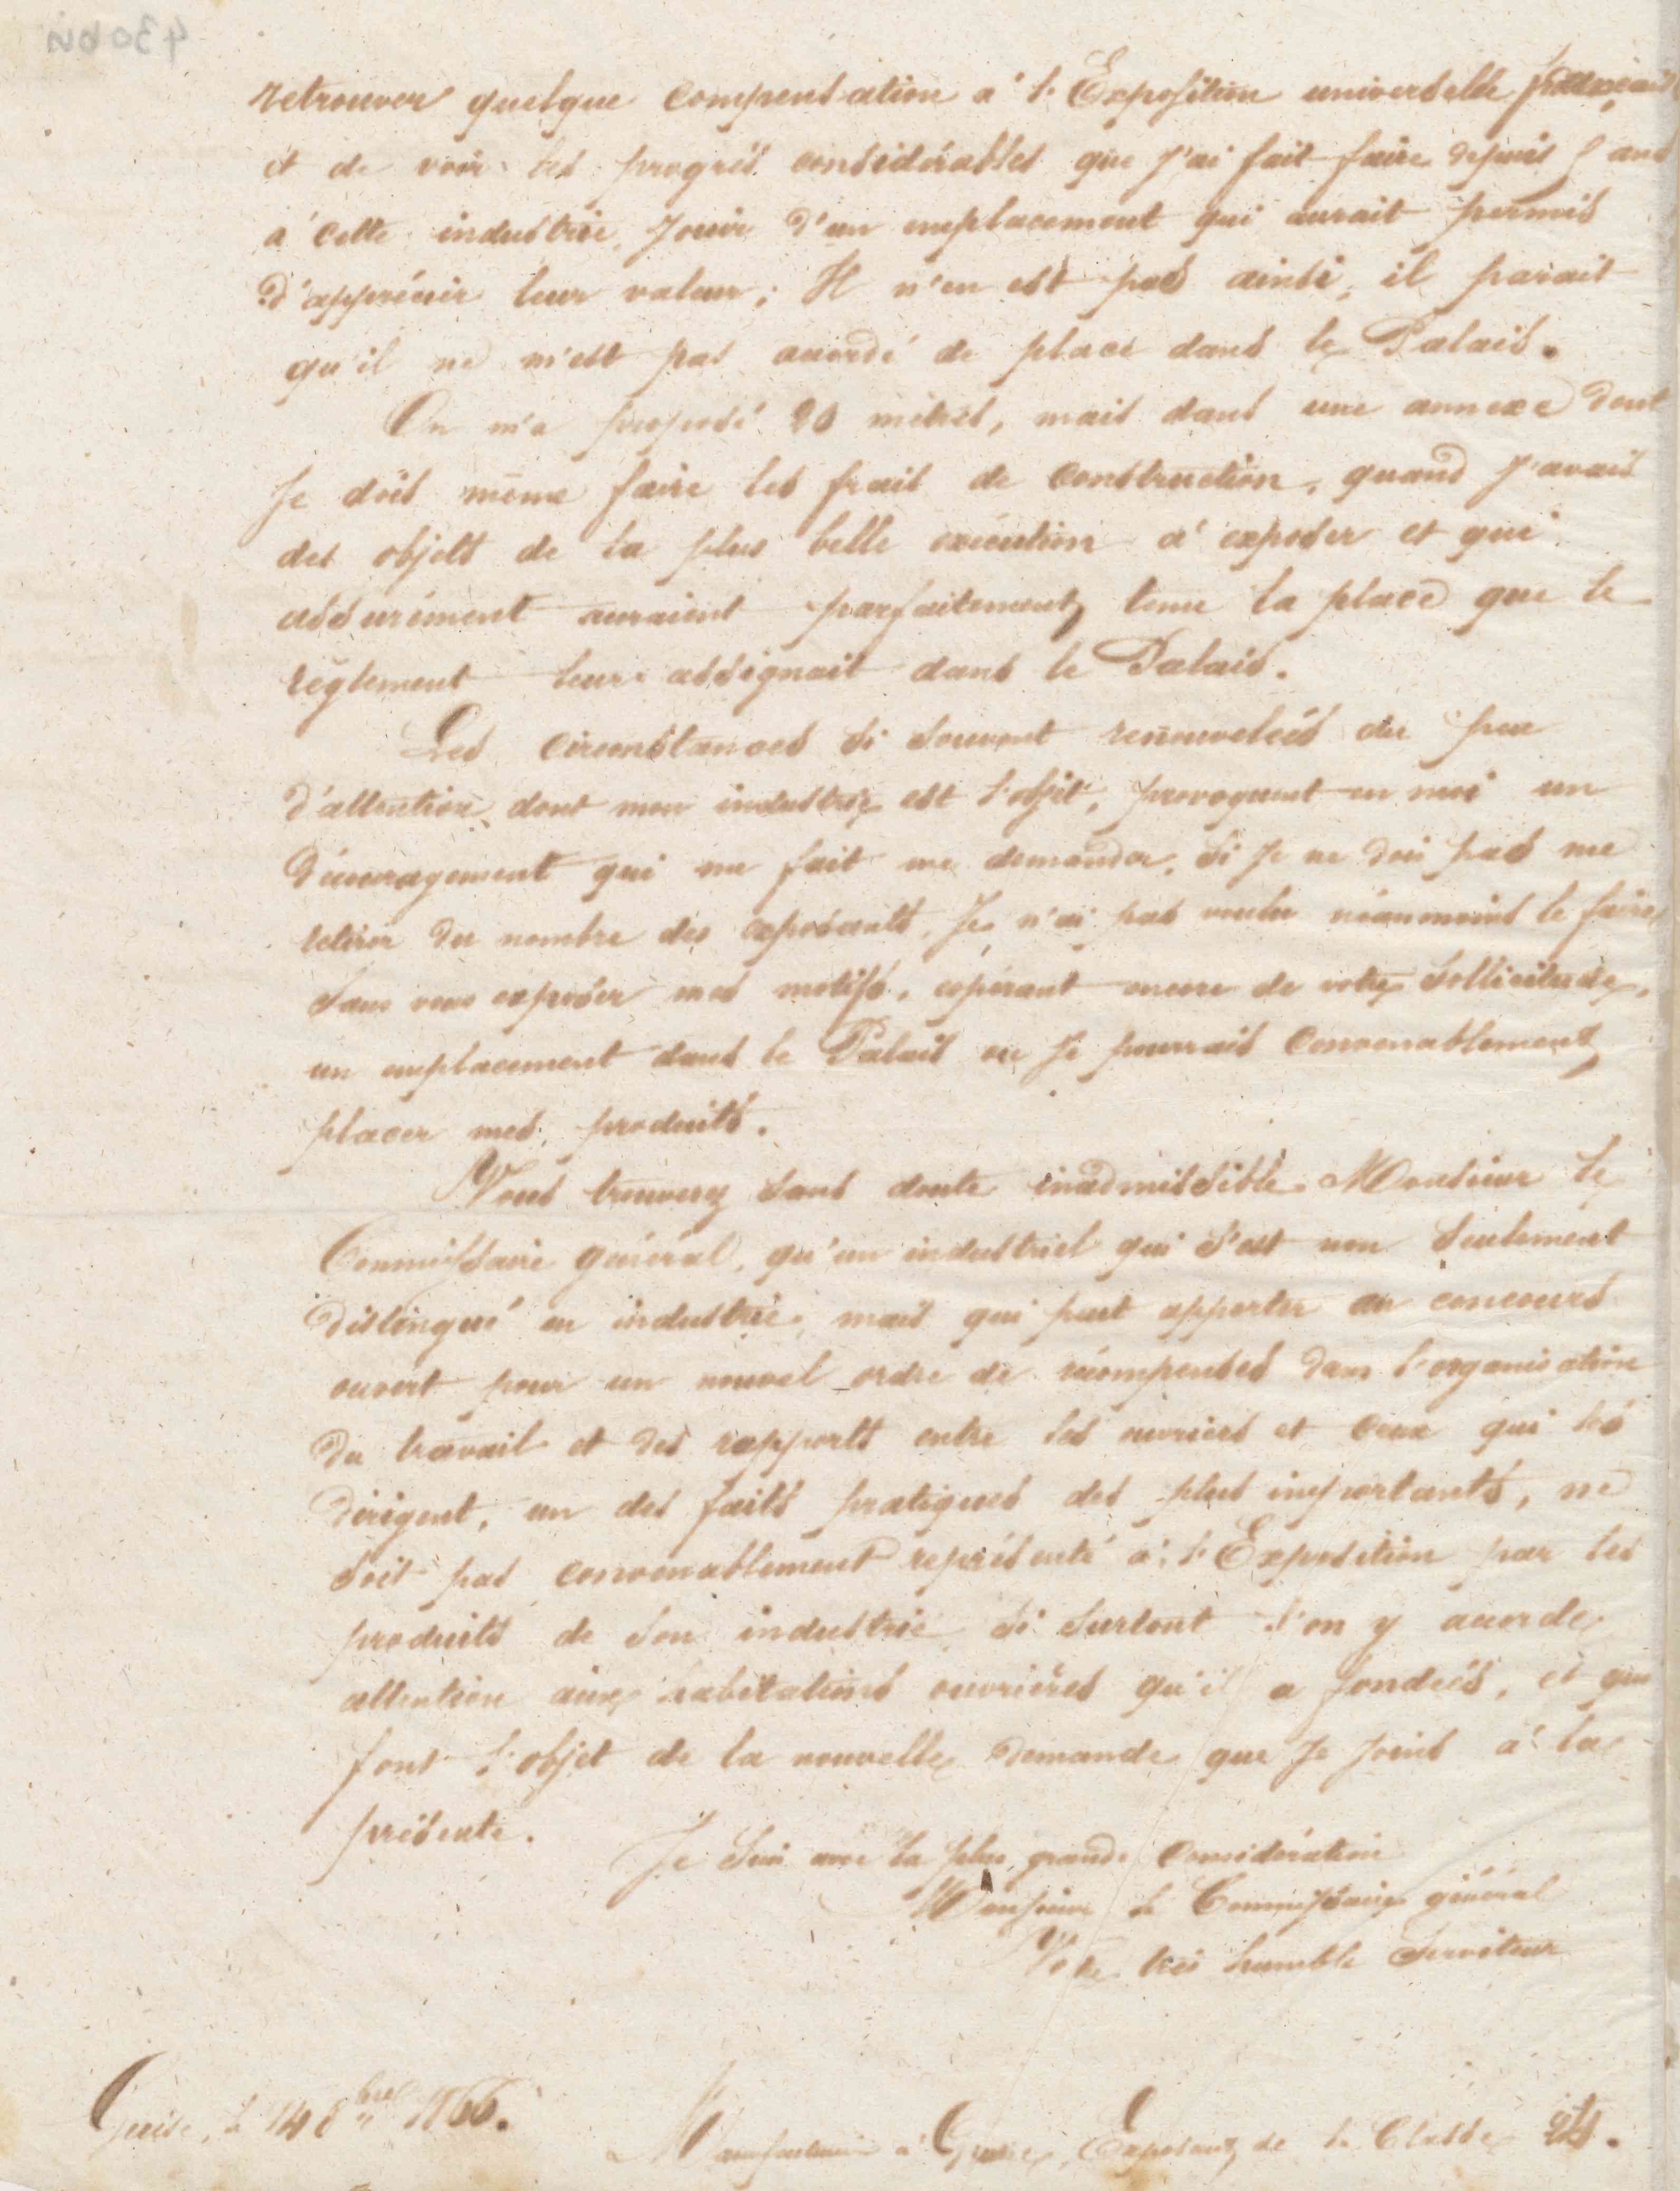 retrouver quelque compensation à l'Exposition universelle française
et de voir les progrès considérables que j'ai fait faire depuis ans
à cette industrie, jouir d'un emplacement qui aurait permis
d'apprécier leur valeur ; Il n'en est pas ainsi, il parait
qu'il ne m'est pas accordé de place dans le Palais.
On m'a proposé 20 mètres, mais dans une annexe dont
je dois même faire les frais de construction, quand j'avais
des objets de la plus belle exécution à exposer et qui
assurément auraient parfaitement tenu la place que le
règlement leur assignait dans le Palais.
Les circonstances si souvent renouvelées du peu
d'attention dont mon industrie est l'objet, provoquent en moi un
découragement qui me fait me demander, si je ne dois pas me
retirer du nombre des exposants, Je n'ai pas voulu néanmoins le faire
sans vous exposer mes motifs, espérant encore de votre sollicitude,
un emplacement dans le Palais ou je pourrais convenablement
placer mes produits.
Vous trouverez sans doute inadmissible Monsieur le
Commissaire général, qu'un industriel qui s'est non seulement
distingué en industrie, mais qui peut apporter au concours
ouvert pour un nouvel ordre de récompenses dans l'organisation
du travail et des rapports entre les ouvriers et ceux qui les
dirigent, un des faits pratiques des plus importants, ne
soit pas convenablement représenté à l'Exposition par les
produits de son industrie si surtout l'on y accorde
attention aux habitations ouvrières qu'il a fondées, et qui
font l'objet de la nouvelle demande que je joins à la
présente.
Je suis avec la plus grande considération
Monsieur le Commissaire général
Votre très humble serviteur
Guise, le 14 8bre 1866.
Manufacturier à Guise, Exposant de la Classe 24.
430 bis